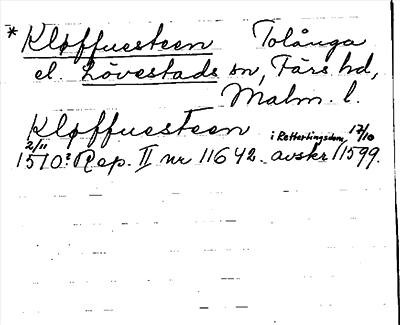 *Kloffuesteen Tolånga
el. Lövestads sn, Färs hd,
Malm. l.
Kloffuesteen
2/11 1510? Rep. II nr 11642. i Rettertingsdom avskr 17/10 1599.